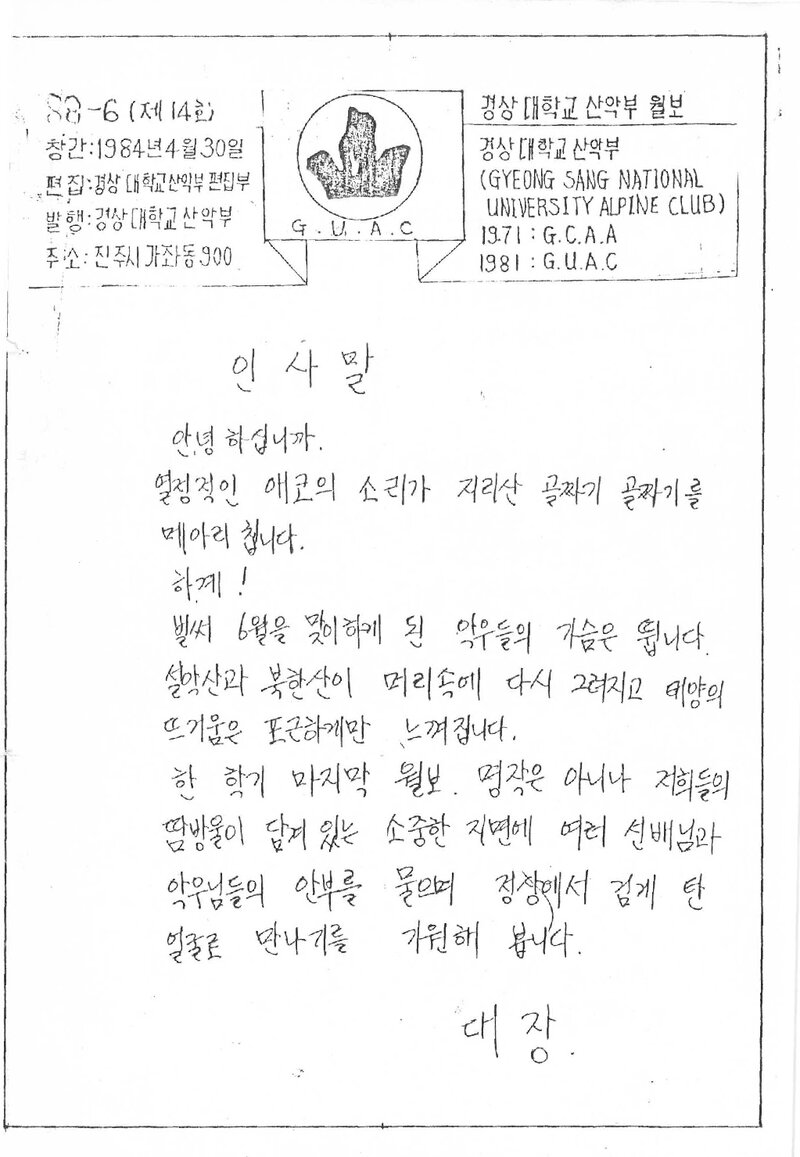 88-6 (제14호)
창간:1984年4月30일
편집:경상대학교산악부 편집부
발행:경상대학교 산악부
주소:진주시 가좌동 900
G.U.A.C
경상대학교 산악부 월보
경상대학교 산악부
(GYEONG SANG NATIONAL
UNIVERSITY ALPINE CLUB)
1971 : G.C.A.A
1981 : G.U.A.C
인사말
안녕하십니까.
열정적인 애코의 소리가 지리산 골짜기 골짜기를
메아리 칩니다.
하계!
벌써 6월을 맞이하게 된 악우들의 가슴은 뜁니다.
설악산과 북한산이 머리속에 다시 그려지고 태양의
뜨거움은 포근하게만 느껴집니다.
한 학기 마지막 월보. 명작은 아니나 저희들의
땀방울이 담겨 있는 소중한 지면에 여러 선배님과
악우님들의 안부를 물으며 정상에서 검게 탄
얼굴로 만나기를 기원해 봅니다.
대장.